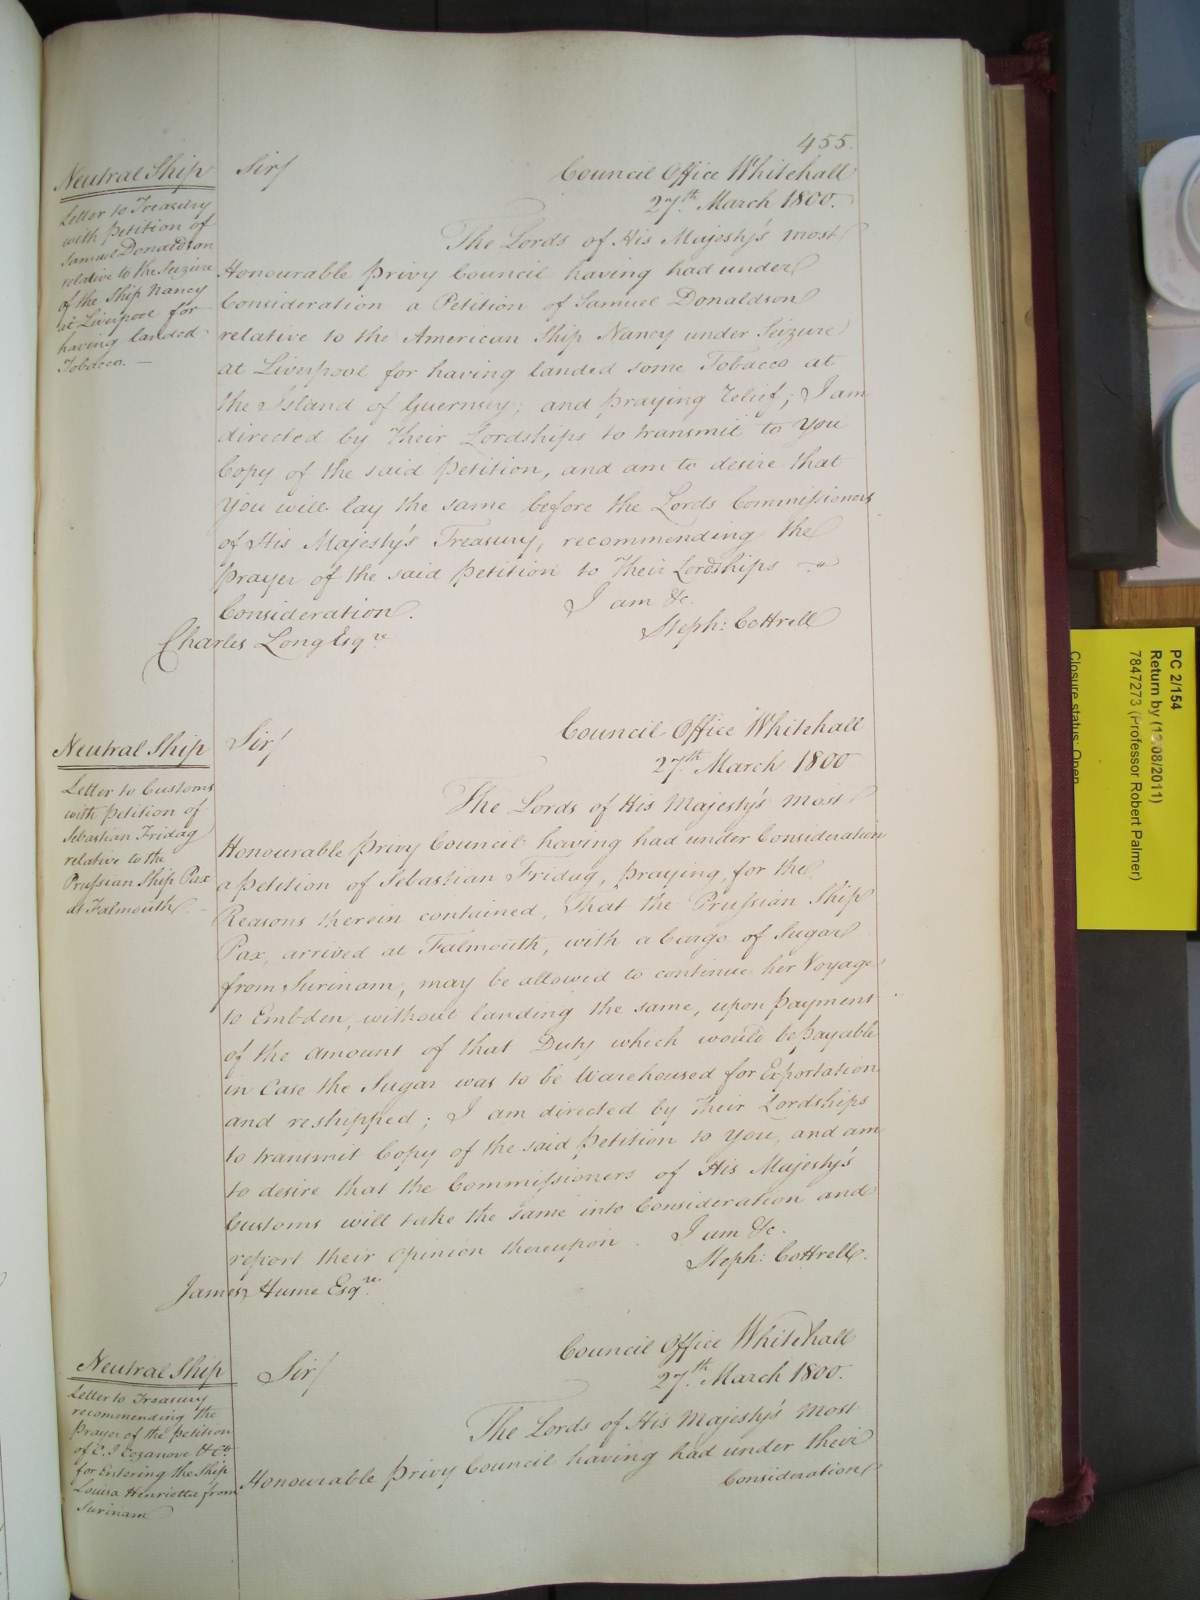 455.
Neutral Ship
Letter to Treasury
with Petition of
Samuel Donaldson
relative to the Seizure
of the Ship Nancy
at Liverpool for
having landed
Tobacco. —
Sir/
Council Office Whitehall
27.th March 1800.
The Lords of His Majesty's most
Honourable Privy Council having had under
Consideration a Petition of Samuel Donaldson
relative to the American Ship Nancy under Seizure
at Liverpool for having landed some Tobacco at
the Island of Guernsey; and praying relief; I am
directed by Their Lordships to transmit to You
Copy of the said Petition, and am to desire that
You will lay the same before the Lords Commissioners
of His Majesty's Treasury, recommending the
Prayer of the said Petition to Their Lordships
Consideration.
I am &c.
Steph: Cottrell
Charles Long Esqre
Neutral Ship
Letter to Customs
with Petition of
Sebastian Fridag
relative to the
Prussian Ship Pax
at Falmouth. –
Sir/
Council Office Whitehall
27.th March 1800
The Lords of His Majesty's most
Honourable Privy Council having had under Consideration
a Petition of Sebastian Fridag, praying, for the
Reasons therein contained, That the Prussian Ship
Pax, arrived at Falmouth, with a Cargo of Sugar
from Surinam, may be allowed to continue her Voyage
to Embden, without landing the same, upon payment
of the amount of that Duty which would be payable
in Case the Sugar was to be Warehoused for Exportation
and reshipped; I am directed by Their Lordships
to transmit Copy of the said Petition to You, and am
to desire that the Commissioners of His Majesty's
Customs will take the same into Consideration and
report their Opinion thereupon.
I am &c.
Steph: Cottrell.
James Hume Esqre.
Neutral Ship
Letter to Treasury
recommending the
Prayer of the Petition
of C. I. Cozanove & Co.
for Entering the Ship
Louisa Henrietta from
Surinam
Sir/
Council Office Whitehall
27.th March 1800.
The Lords of His Majesty's most
Honourable Privy Council having had under their
Consideration
PC 2/154
Return by (12/08/2011)
7847273 (Professor Robert Palmer)
Closure status: Open